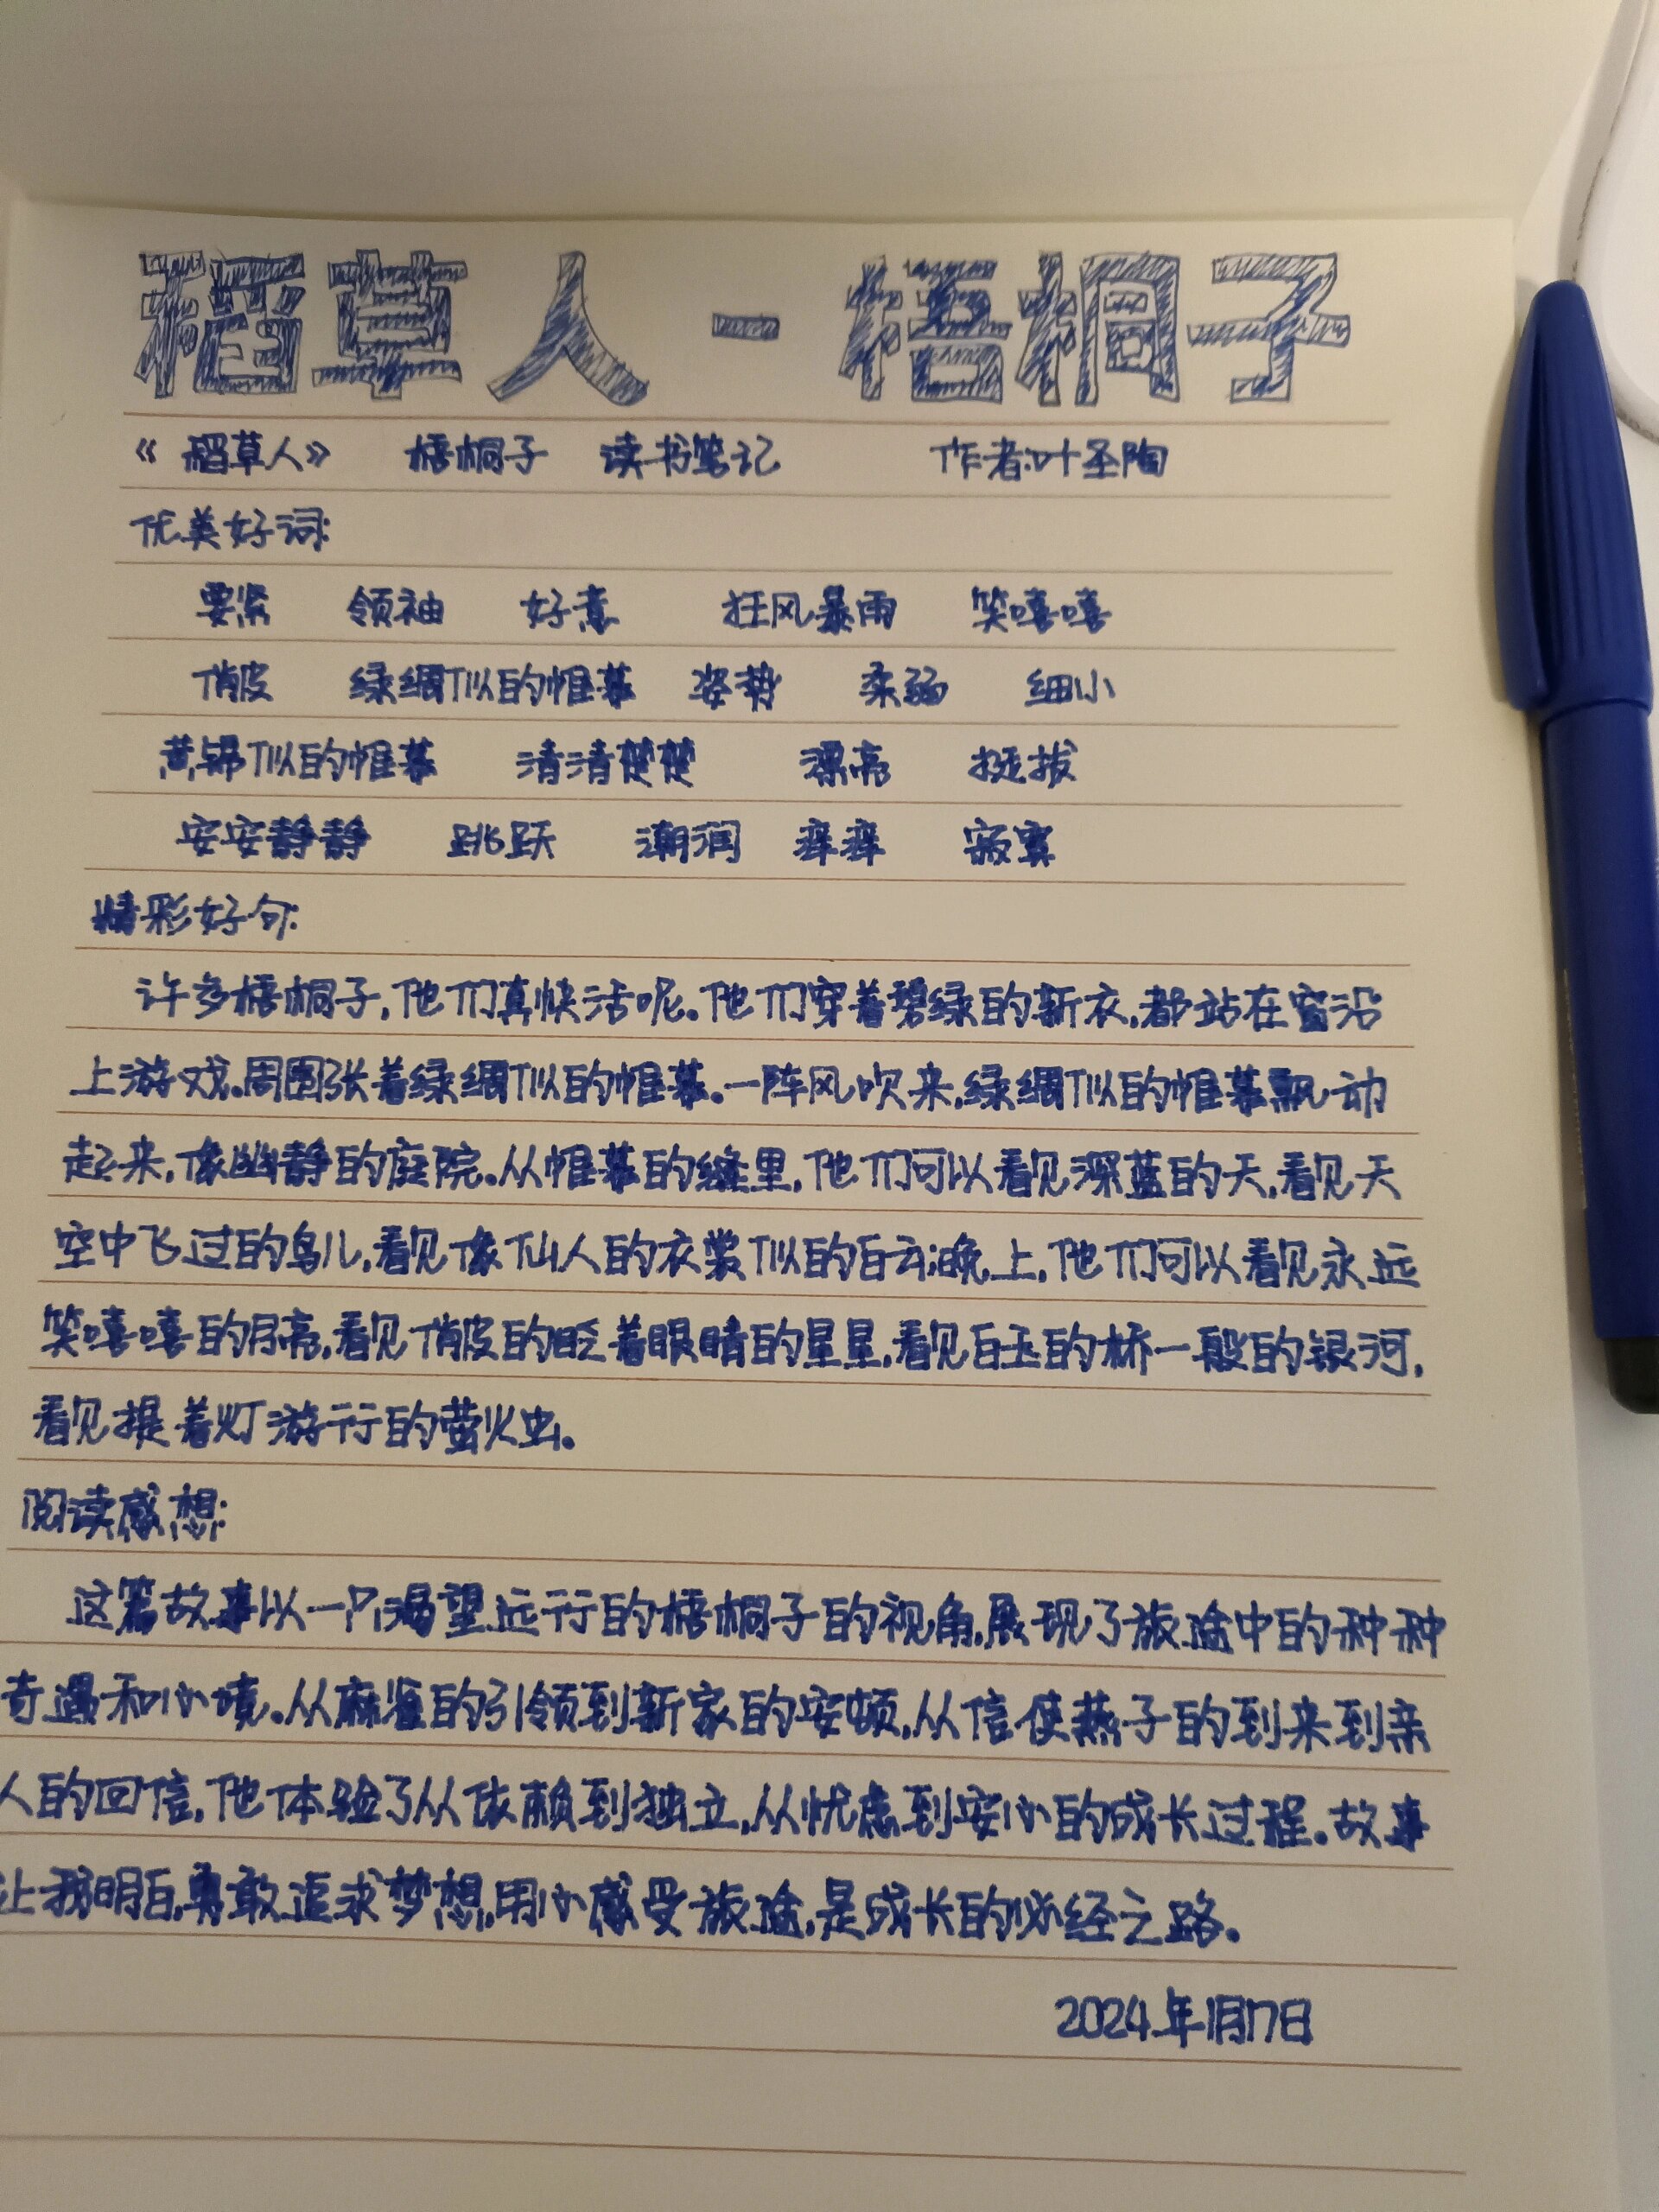 稻草人-梧桐子
《稻草人》 梧桐子 读书笔记 作者:叶圣陶
优美好词:
要紧 领袖 好意 狂风暴雨 笑嘻嘻
俏皮 绿绸似的帷幕 姿势 柔弱 细小
黄锦似的帷幕 清清楚楚 漂亮 挺拔
安安静静 跳跃 潮润 痒痒 寂寞
精彩好句:
许多梧桐子,他们真快活呢。他们穿着碧绿的新衣,都站在窗沿
上游戏。周围张着绿绸似的帷幕。一阵风吹来,绿绸似的帷幕飘动
起来,像幽静的庭院。从帷幕的缝里,他们可以看见深蓝的天,看见天
空中飞过的鸟儿,看见像仙人的衣裳似的白云;晚上,他们可以看见永远
笑嘻嘻的月亮,看见俏皮的眨着眼睛的星星,看见白玉的桥一般的银河,
看见提着灯游行的萤火虫。
阅读感想:
这篇故事以一只渴望远行的梧桐子的视角,展现了旅途中的种种
奇遇和心境。从麻雀的引领到新家的安顿,从信使燕子的到来到亲
人的回信,他体验了从依赖到独立,从忧虑到安心的成长过程。故事
让我明白,勇敢追求梦想,用心感受旅途,是成长的必经之路。
2024年1月17日